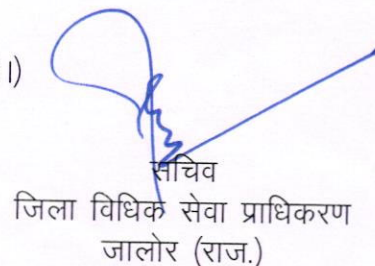 ।)
सचिव
जिला विधिक सेवा प्राधिकरण
जालोर (राज.)